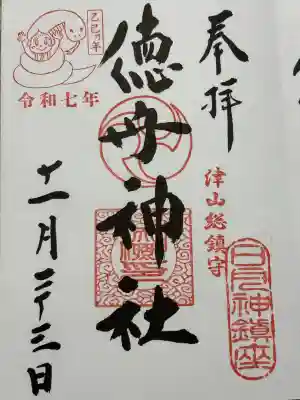 奉拝
津山総鎮守
徳守神社
乙巳乃年
令和七年
十一月二十三日